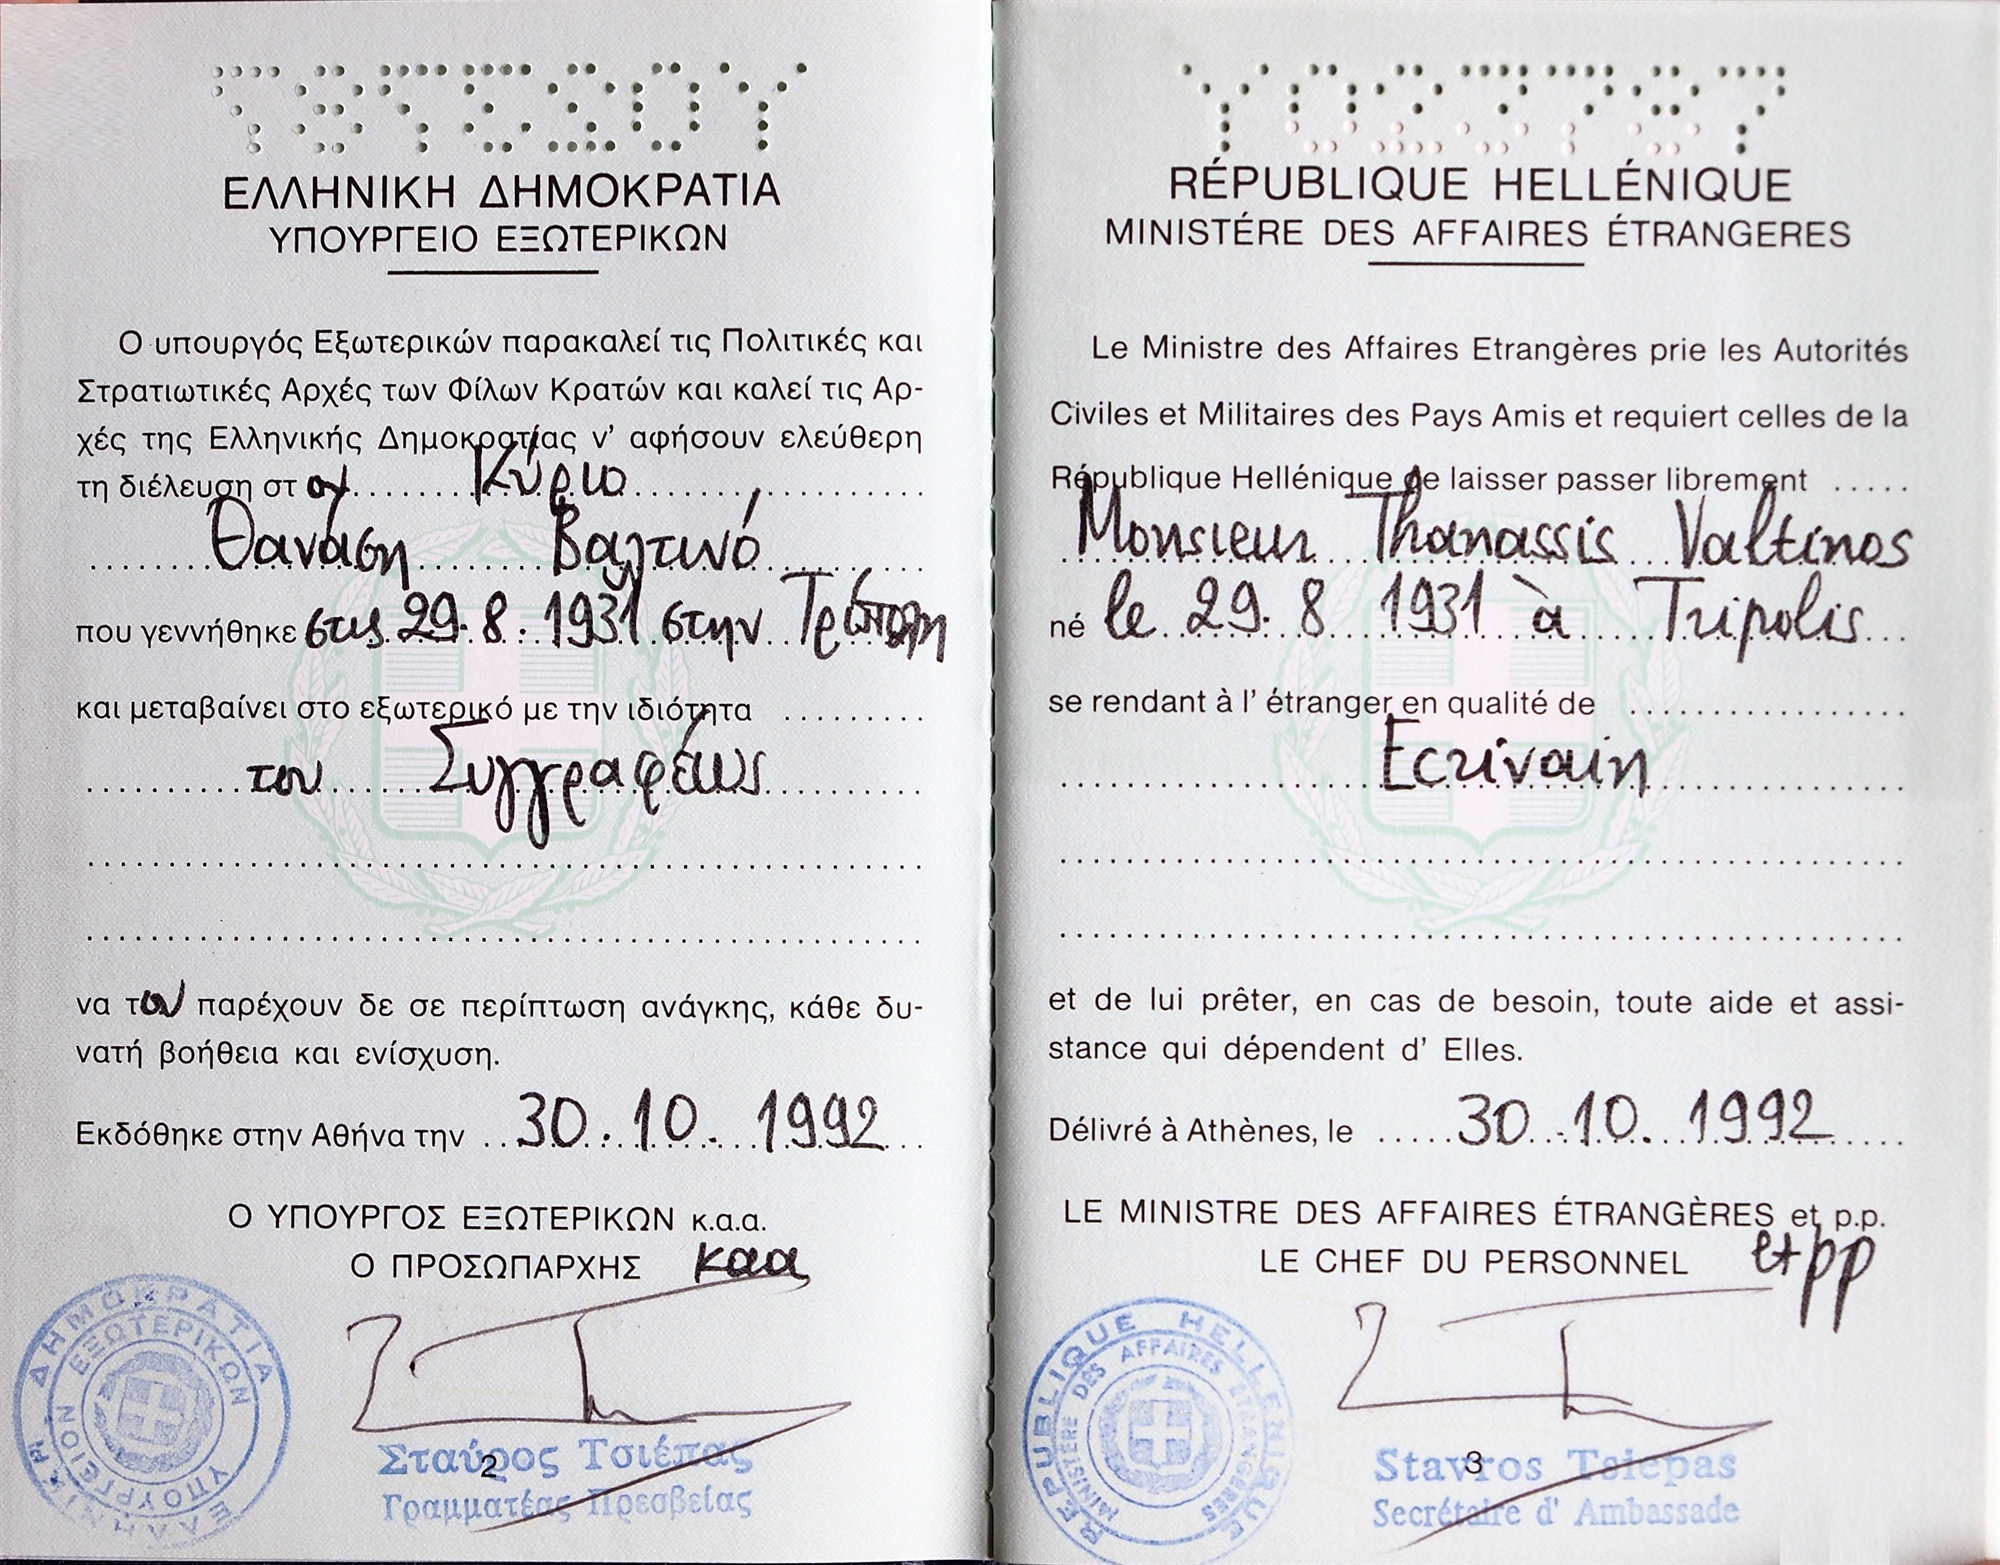 ΕΛΛΗΝΙΚΗ ΔΗΜΟΚΡΑΤΙΑ
ΥΠΟΥΡΓΕΙΟ ΕΞΩΤΕΡΙΚΩΝ
Ο υπουργός Εξωτερικών παρακαλεί τις Πολιτικές και
Στρατιωτικές Αρχές των Φίλων Κρατών και καλεί τις Αρ-
χές της Ελληνικής Δημοκρατίας ν' αφήσουν ελεύθερη
τη διέλευση στον Κύριο
Θανάση Βαλτινό
που γεννήθηκε στις 29.8.1931 στην Τρίπολη
και μεταβαίνει στο εξωτερικό με την ιδιότητα
του Συγγραφέως
να του παρέχουν δε σε περίπτωση ανάγκης, κάθε δυ-
νατή βοήθεια και ενίσχυση.
Εκδόθηκε στην Αθήνα την 30.10.1992
Ο ΥΠΟΥΡΓΟΣ ΕΞΩΤΕΡΙΚΩΝ κ.α.α.
Ο ΠΡΟΣΩΠΑΡΧΗΣ καα
ΕΛΛΗΝΙΚΗ ΔΗΜΟΚΡΑΤΙΑ
ΥΠΟΥΡΓΕΙΟΝ ΕΞΩΤΕΡΙΚΩΝ
Σταύρος Τσιέπας
2
Γραμματέας Πρεσβείας
Y023787
RÉPUBLIQUE HELLÉNIQUE
MINISTÉRE DES AFFAIRES ÉTRANGERES
Le Ministre des Affaires Etrangères prie les Autorités
Civiles et Militaires des Pays Amis et requiert celles de la
République Hellénique de laisser passer librement
Monsieur Thanassis Valtinos
né le 29.8 1931 à Tripolis
se rendant à l' étranger en qualité de
Ecrivain
et de lui prêter, en cas de besoin, toute aide et assi-
stance qui dépendent d' Elles.
Délivré à Athènes, le 30.10.1992
LE MINISTRE DES AFFAIRES ÉTRANGÈRES et p.p.
LE CHEF DU PERSONNEL et pp
REPUBLIQUE HELLENIQUE
MINISTÈRE DES AFFAIRES ETRANGÈRES
Stavros Tsiepas
3
Secrétaire d' Ambassade